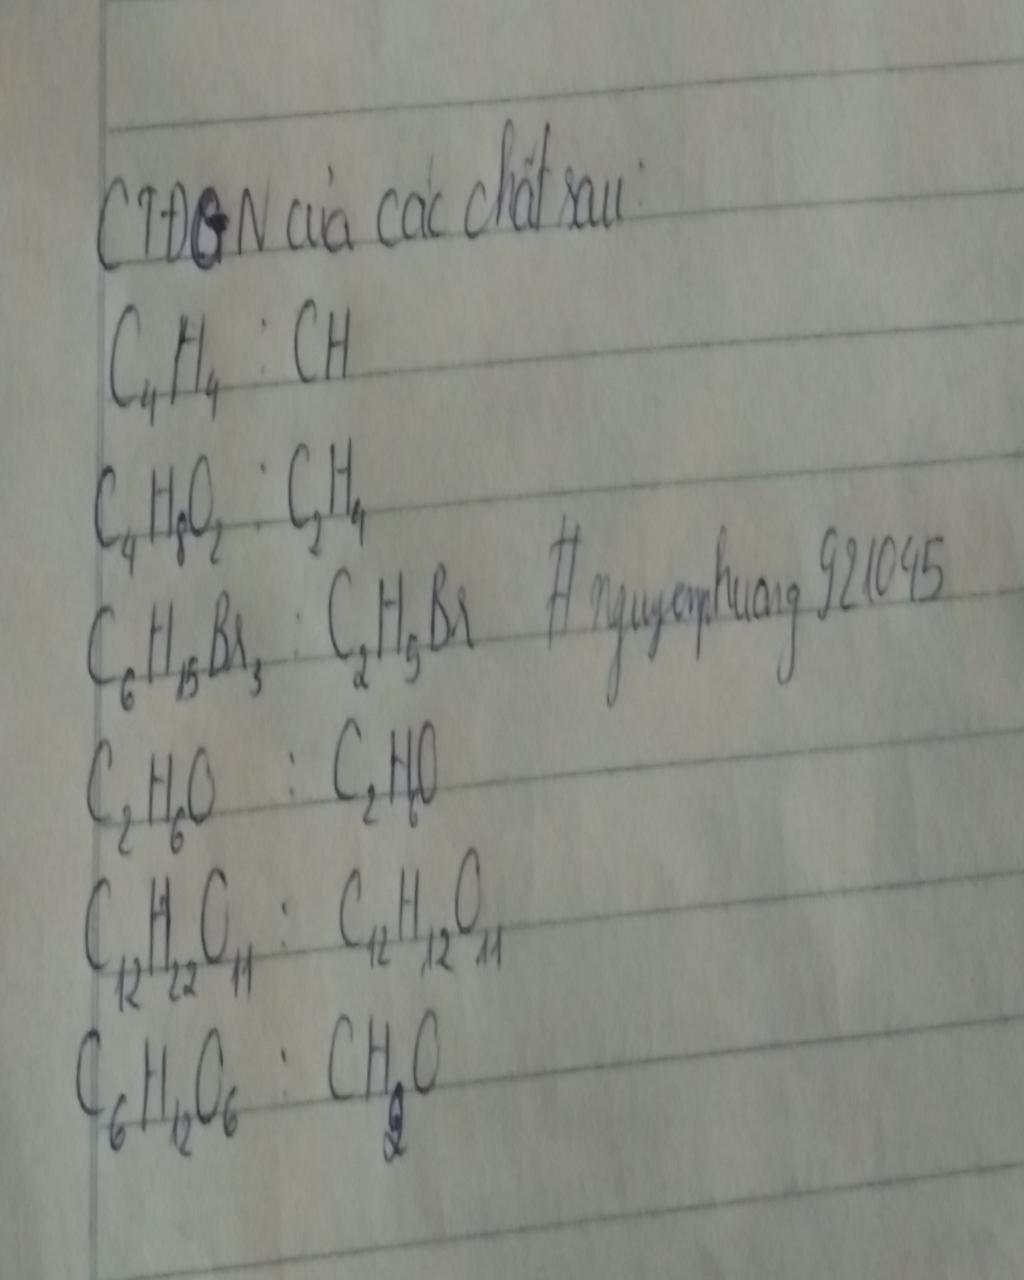 CTĐGN của các chất sau:
C₄H₄ : CH
C₄H₈O₂ : C₂H₄
C₆H₁₅Br₃ : C₂H₅Br #nguyenphuong921045
C₂H₆O : C₂H₆O
C₁₂H₂₂O₁₁ : C₁₂H₁₂O₁₁
C₆H₁₂O₆ : CH₂O